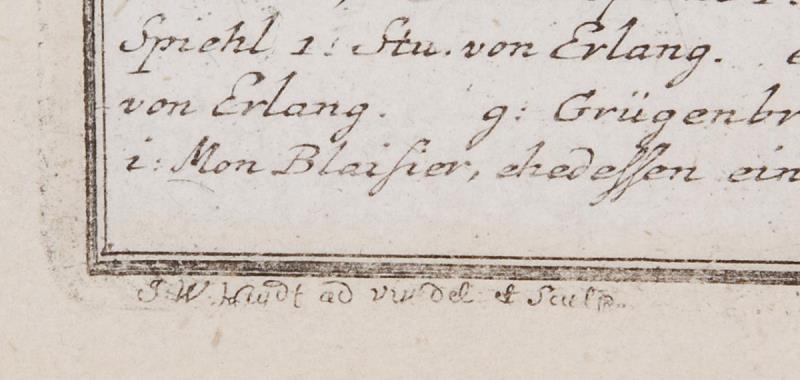 Spiehl 1: Stu. von Erlang.
von Erlang. g: Grügenbr
i: Mon Blaisier, ehedessen ein
ad viv del: et Sculp.